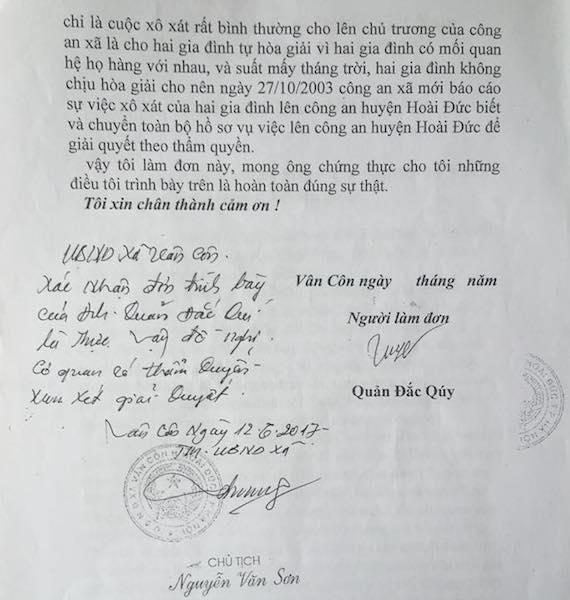 chỉ là cuộc xô xát rất bình thường cho lên chủ trương của công
an xã là cho hai gia đình tự hòa giải vì hai gia đình có mối quan
hệ họ hàng với nhau, và suất mấy tháng trời, hai gia đình không
chịu hòa giải cho nên ngày 27/10/2003 công an xã mới báo cáo
sự việc xô xát của hai gia đình lên công an huyện Hoài Đức biết
và chuyển toàn bộ hồ sơ vụ việc lên công an huyện Hoài Đức để
giải quyết theo thẩm quyền.
vậy tôi làm đơn này, mong ông chứng thực cho tôi những
điều tôi trình bày trên là hoàn toàn đúng sự thật.
Tôi xin chân thành cảm ơn !
Vân Côn ngày tháng năm
Người làm đơn
Quý
Quản Đắc Qúy
UBND xã Vân Côn.
Xác nhận đơn trình bày
của Anh. Quản Đắc Quí
là thực. Vậy đề nghị
Cơ quan có thẩm quyền
xem xét giải quyết.
Vân Côn Ngày 12.6.2017
TM. UBND xã
CHỦ TỊCH
Nguyễn Văn Sơn